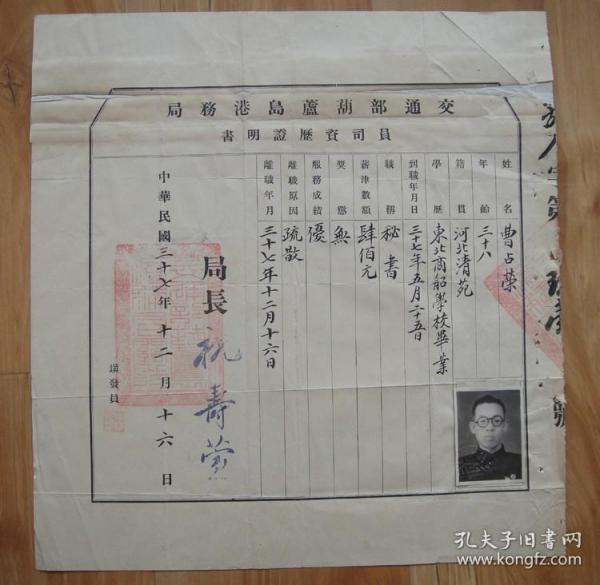 交通部葫蘆島港務局
員司資歷證明書
姓名 曹占荣
年齡 三十八
籍貫 河北清苑
學歷 東北商船學校畢業
到職年月日 三十七年五月二十五日
職稱 秘書
薪津數額 肆佰元
獎懲 無
服務成績 優
離職原因 疏散
離職年月 三十七年十二月十六日
局長 祝壽萱
中華民國三十七年十二月十六日
填發員
字第
號
孔夫子旧书网
kongfz.com